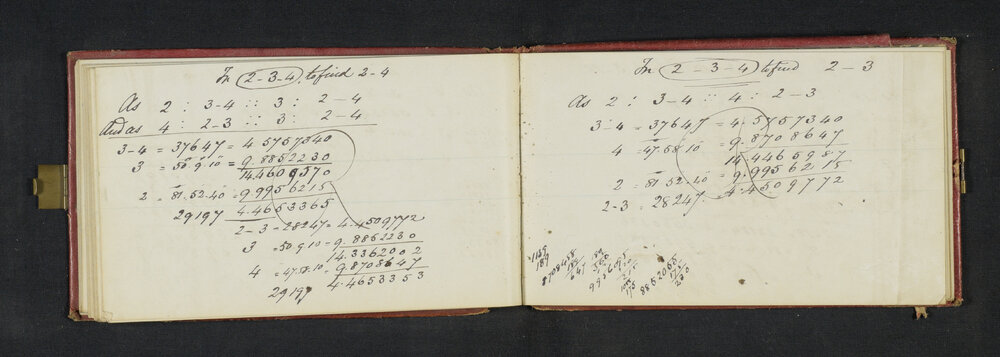 In 2-3-4, to find 2-4
As 2 : 3-4 :: 3 : 2-4
And as 4 : 2-3 :: 3 : 2-4
3-4 = 37647 = 4.5757340
3 = 50.9.10 = 9.8852230
14.4609570
2 = 81.52.40 = 9.9956215
29197 4.4653365
2-3 = 28247 = 4.4509772
3 = 50 9.10 = 9.8852230
14.3362002
4 = 47.58.10 = 9.8708647
29197 4.4653353
In 2-3-4 to find 2-3
As 2 : 3-4 :: 4 : 2-3
3-4 = 37647 = 4.5757340
4 = 47.58.10 = 9.8708647
14.4465987
2 = 81.52.40 = 9.9956215
2-3 = 28247. 4.4509772
189
8708458
189
647
8852055
175
230